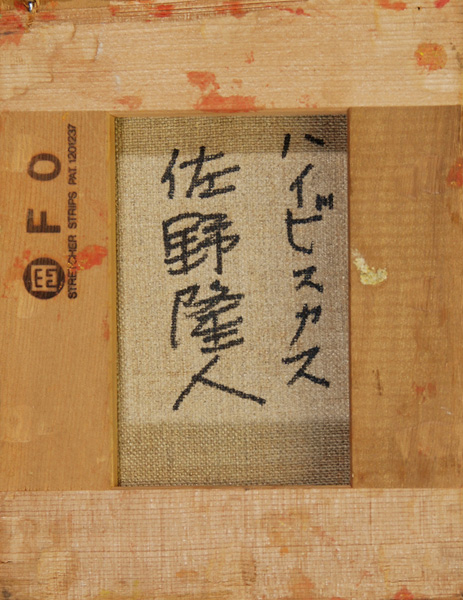 ハイビスカス
佐野隆人
F O
STRETCHER STRIPS PAT. 1201237